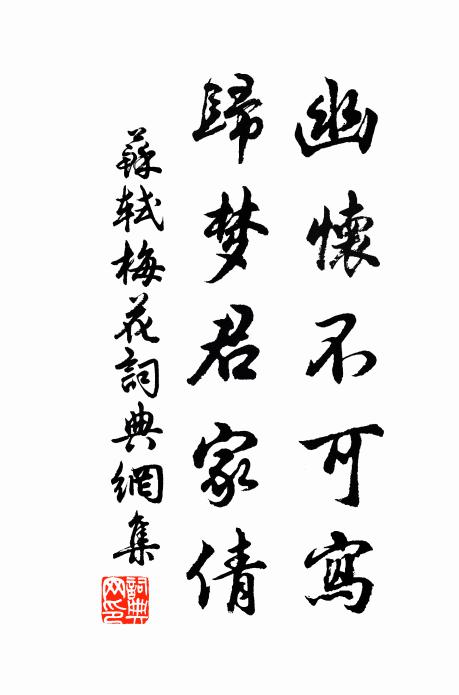 幽懷不可寫
歸梦君家倩
蘇轼梅花詞典網集
詞典网印